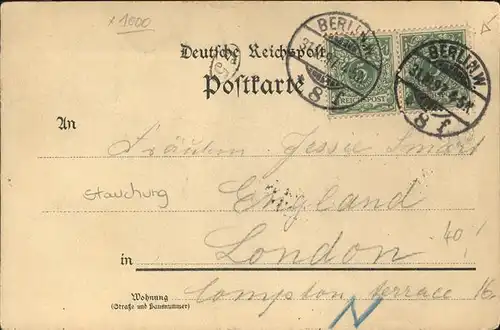 x 1000
Deutsche Reichspost
Postkarte
BERLIN.W.
8 f
REICHSPOST
BERLIN.W.
8 f
An
Fräulein Jessie Smart
Stauchung
England
London
-40!
in
Wohnung
(Straße und Hausnummer)
Compston terrace 16
N